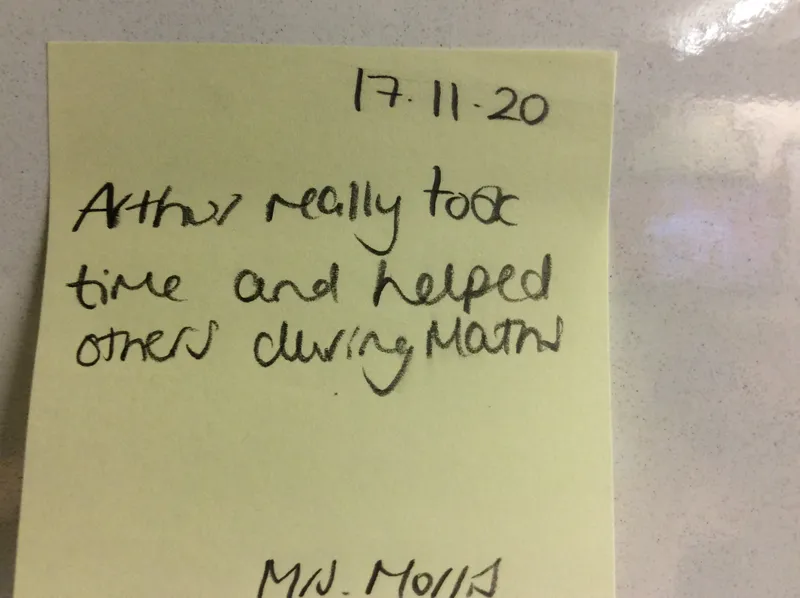 17.11.20
Arthur really took
time and helped
others during Maths
Mrs. Morris